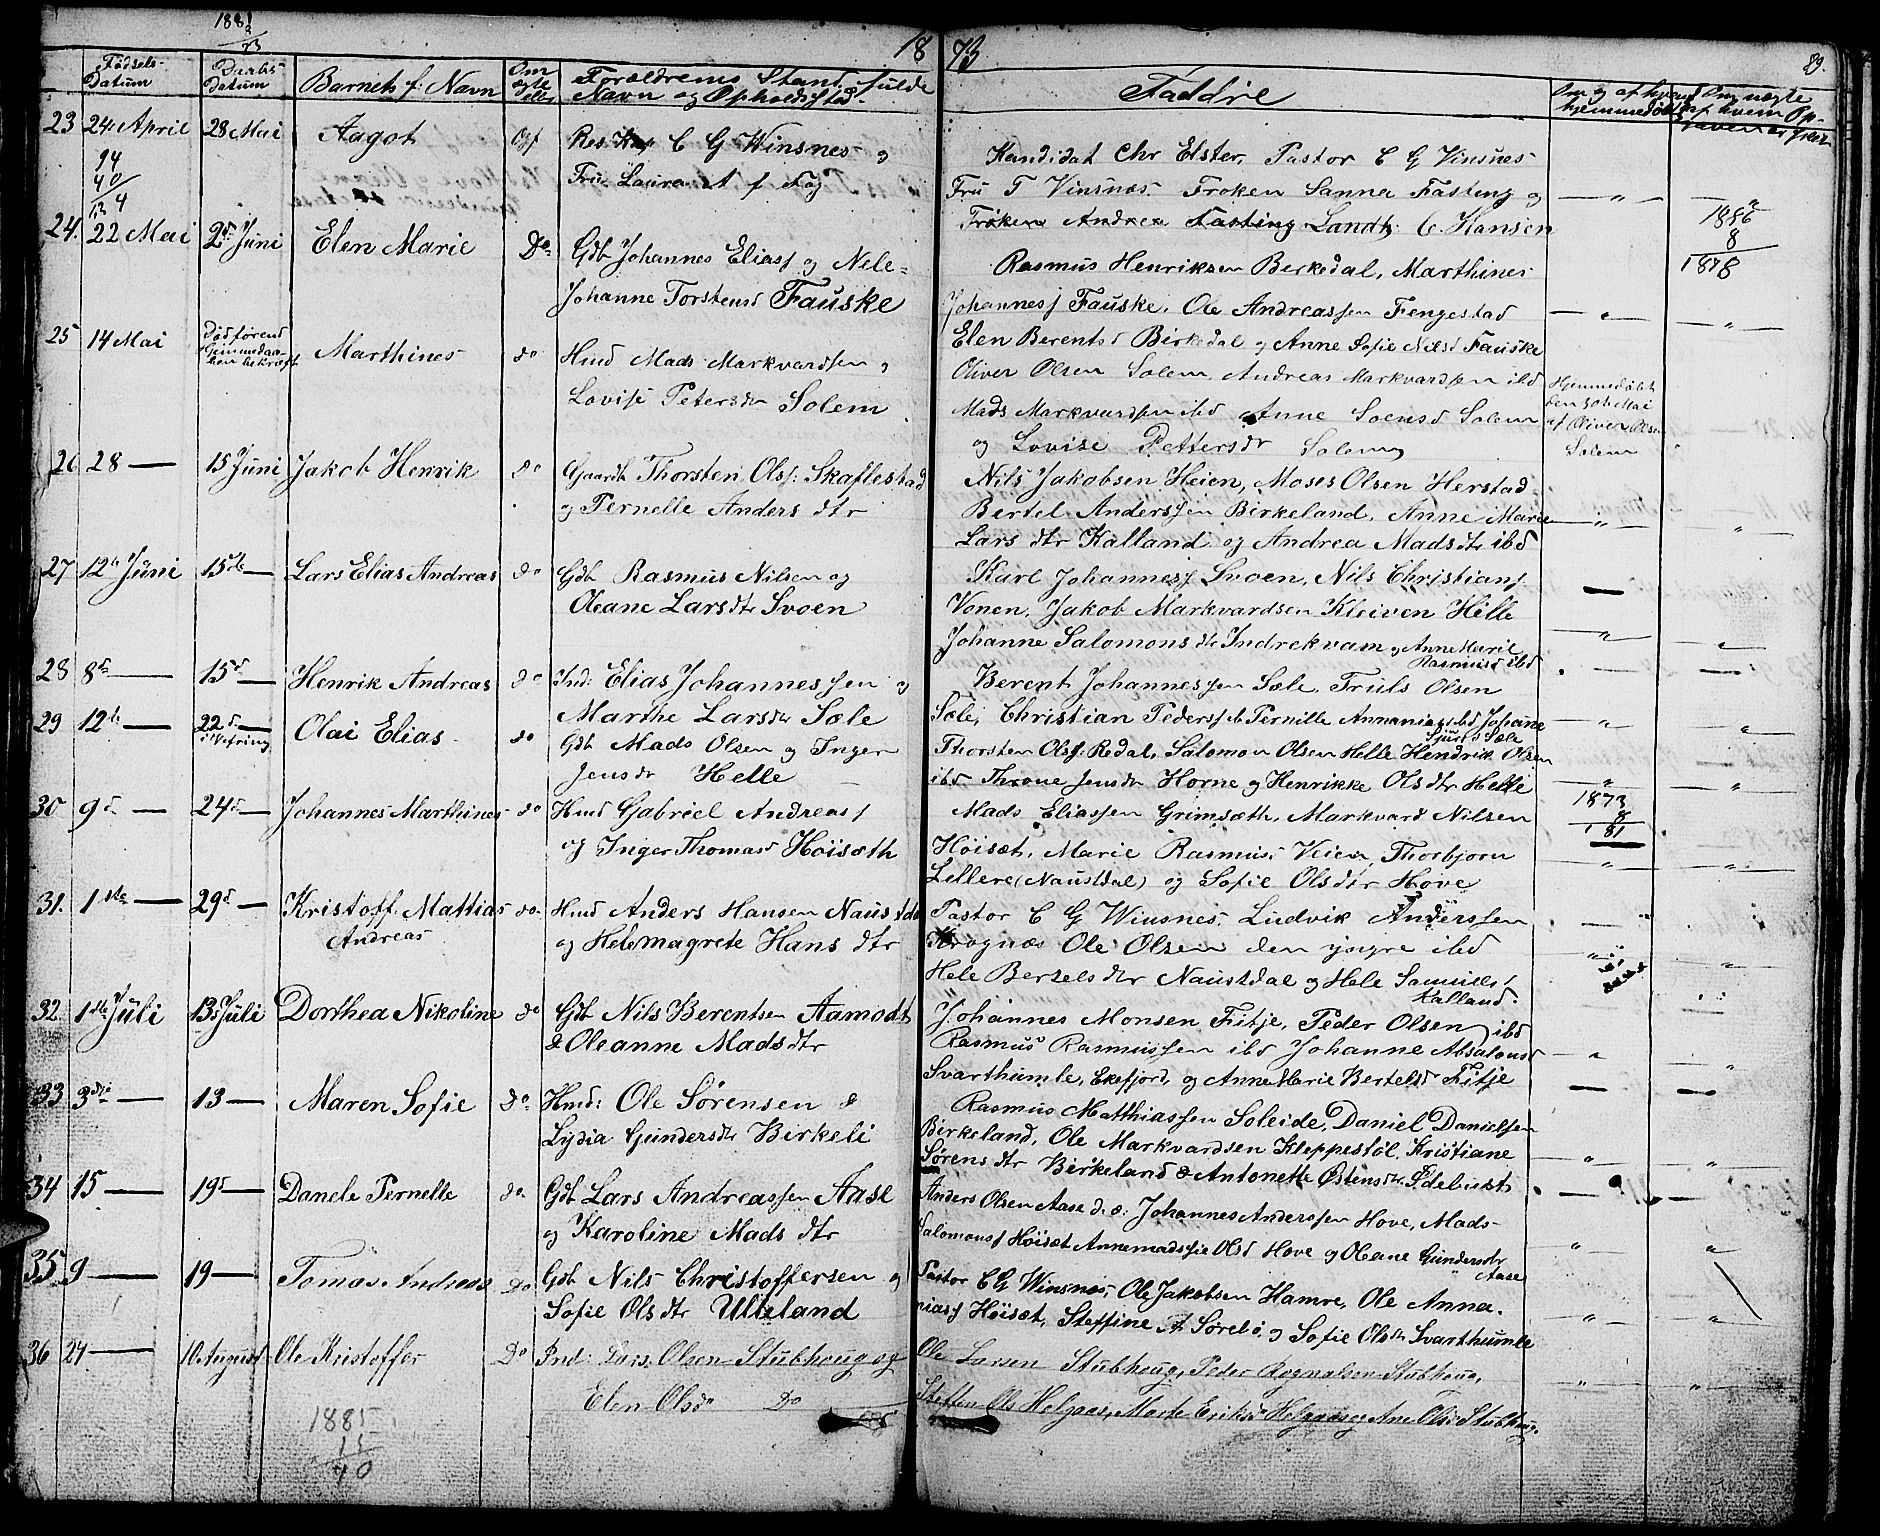 1881
8
73
18 73
89.
Fødsels- Datum
Daabs- Datum
Barnets f: Navn
Om ægte eller
Forældrenes Stand, fulde Navn og Opholdsted.
Faddre
Om og af hvem hjemmedøbt
Om uægte af hvem Op-
23 24 April 28 Mai Aagot Res Kap C G Winsnes og
Fru Laura A f Fag
Kandidat Chr Elster, Pastor C G Vinsnes
Fru T Vinsnæs Frøken Sanna Fasting og
Frøken Andrea Fasting Landh. C. Hansen
94
40
134
1886
8
1878
24. 22 Mai 2d Juni Elen Marie Do Gdb Johannes Eliass og Nele=
Johanne Torstensd Fauske
Rasmus Henriksen Berkedal, Marthines
Johanness Fauske, Ole Andreassen Fengestad
Elen Berentsd Birkedal og Anne Sofie Nilsd Fauske
25 14 Mai Marthines do Hmd Mads Markvardsen og
Lovise Petersdr Solem
Oliver Olsen Solem, Andreas Markvardsen ibd
Mads Markvardsen ibd Anne Soensd Solem
og Lovise Pettersdr Solem
Hjemmedøbt
den 30te Mai
af Oliver Olsen
Solem
26 28 — 15 Juni Jakob Henrik do Gaardb Thorsten Olss: Skaflestad
og Pernelle Anders dtr
Nils Jakobsen Heien, Moses Olsen Herstad
Bertel Anderssen Birkeland, Anne Marie
Lars dtr Kalland og Andrea Madsdtr ibd
27 12te Juni 15de — Lars Elias Andreas do Gdb Rasmus Nilsen og
Oleane Larsdtr Svoen
Karl Johanness Svoen, Nils Christians
Vonen, Jakob Markvardsen Kleiven Helle
Johanne Salomonsdtr Indrekvam og Anne Marie
Rasmusd ibd
28 8de — 15d — Henrik Andreas do Ind: Elias Johannessen og
Marthe Larsdtr Sæle
Berent Johannessen Sæle, Truls Olsen
Sæle, Christian Peders ibd Pernille Annaniasd ibd Johane
Sjursd Sæle
29 12te — 22d — i Vefring Olai Elias do Gdb Mads Olsen og Inger
Jensdr Helle
Thorsten Olss. Redal, Salomon Olsen Helle Hendrik Olsen
ibd Throne Jensdr Horne og Henrikke Olsdtr Helle
30 9d — 24d — Johannes Marthines do Hmd Gabriel Andreass
og Inger Thomasd Høisæth
Mads Eliassen Grimsæth, Markvard Nilsen
Høiset, Marie Rasmusd Veien, Thorbjørn
Lellere (Naustdal) og Sofie Olsdtr Hove
1873
8
181
31. 1ste — 29d — Kristoff. Mattias
Andreas
do. Hmd Anders Hansen Naustdal
og Helemagrete Hans dtr
Pastor C G Winsnes, Ludvik Anderssen
Krognæs Ole Olsen den yngre ibd
Hele Bertelsdtr Naustdal og Hele Samuels
Kalland.
32. 1ste Juli 13d Juli Dorthea Nikoline do Gdb Nils Berentsen Aamodt
& Oleanne Mads dtr
Johannes Monsen Fitje, Peder Olsen ibd
Rasmus Rasmussen ibd Johanne Absalonsd
Svarthumle, Ekefjord, og Anne Marie Bertelsd Fitje
33 3die — 13 — Maren Sofie Do. Hmd: Ole Sørensen &
Lydia Gundersdtr Birkeli
Rasmus Matthiassen Soleide, Daniel Danielsen
Birkeland, Ole Markvardsen Kleppestøl, Kristiane
Sørens dtr Birkeland & Antonette Østensdtr Edelust
34 15 — 19d — Danele Pernelle do Gdb Lars Andreassen Aase
og Karoline Mads dtr
Anders Olsen Aase d: æ: Johannes Anderssen Hove, Mads
Salomons Høiset Annemadssie Olsd Hove og Oleane Gundersdr
Aase
35 9 — 19 — Tomas Andreas Do Gdb Nils Christoffersen og
Sofie Olsdtr Ulltland
Pastor C G Winsnæs, Ole Jakobsen Hamre, Ole Anna-
niass Høiset, Steffine A Sørebø, og Sofie Olsdtr Svarthumle
36 24 — 10. August Ole Kristoffer Do Ind: Lars Olsen Stubhoug og
Elen Olsdr Do
Ole Larsen Stubhoug, Peder Rognalsen Stubhoug,
Steffen Ols Helgaas, Marte Eriksdr Helgaas og Ane Olsdr Stubhoug
1885